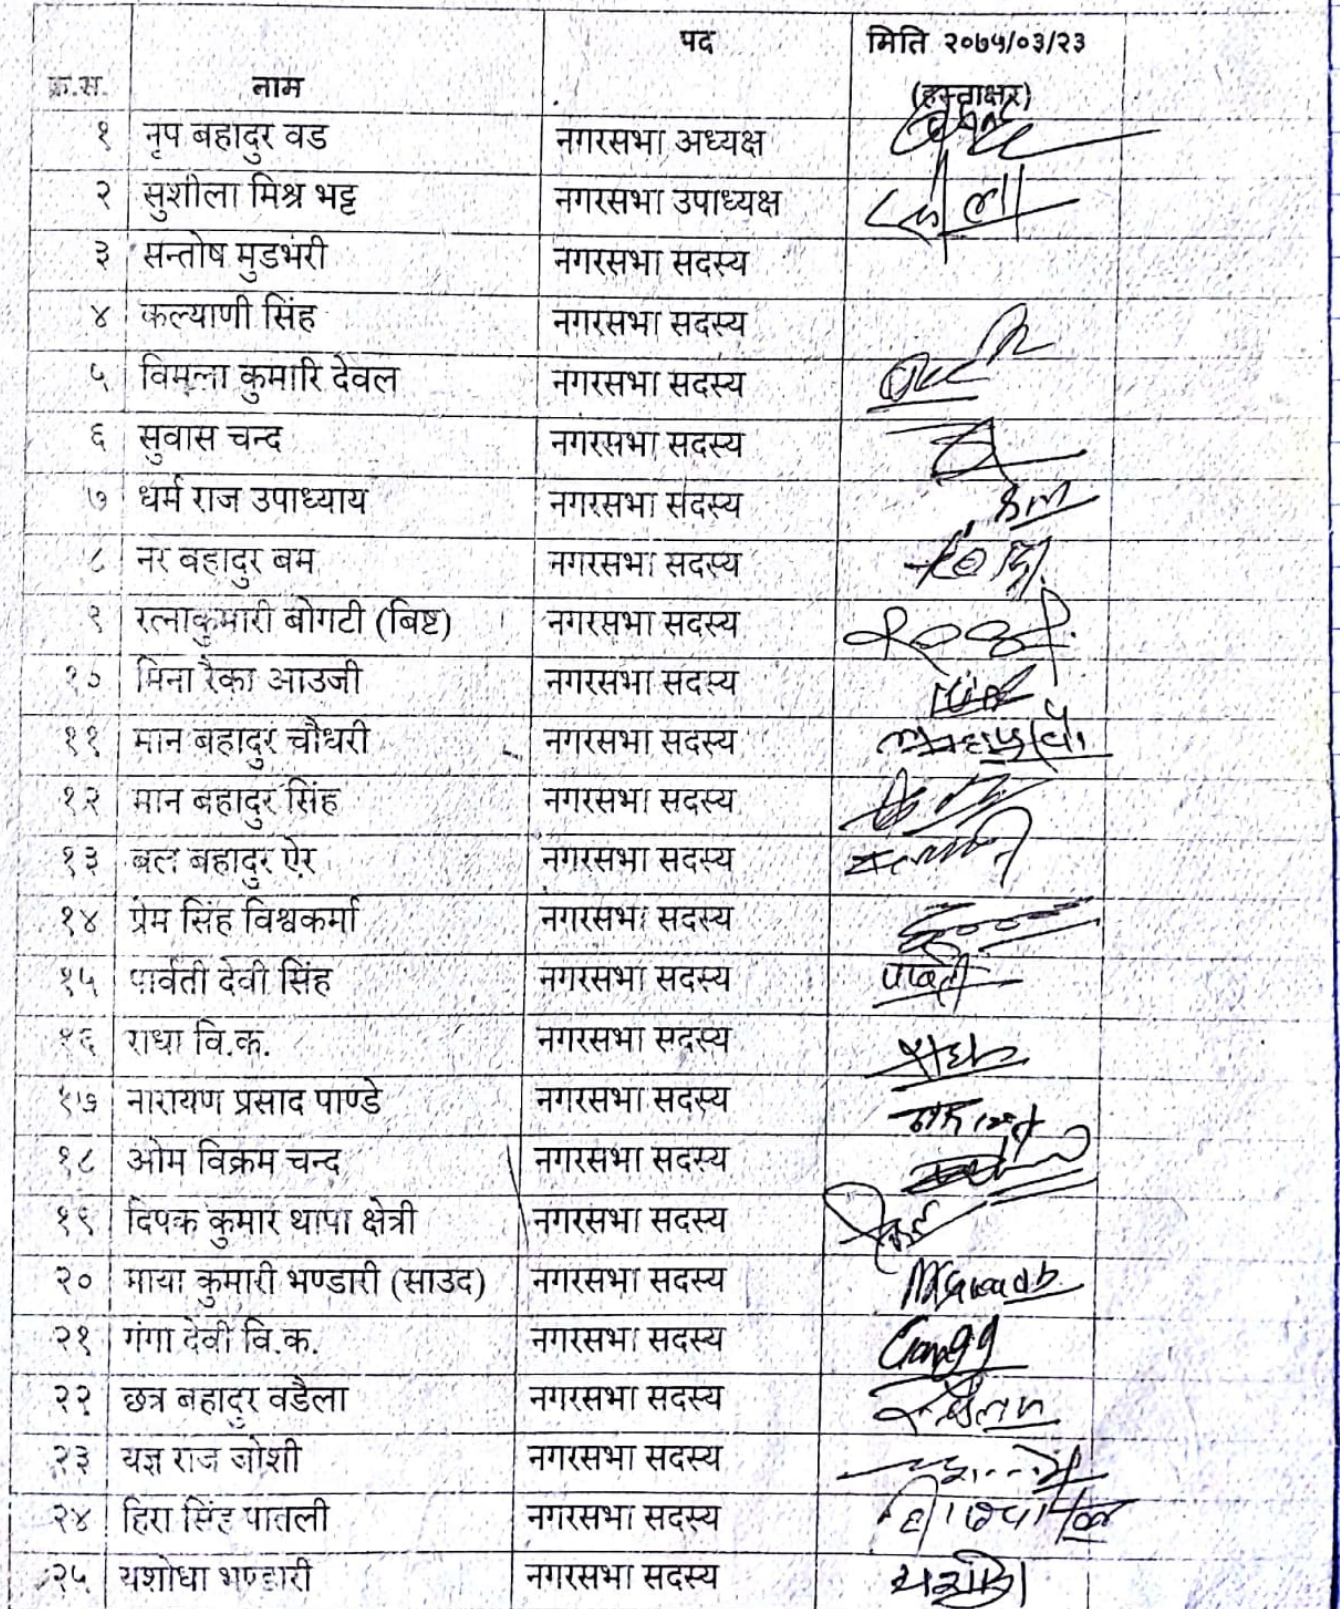 पद मिति २०७५/०३/२३
क्र.स. नाम (हस्ताक्षर)
१ नृप बहादुर वड नगरसभा अध्यक्ष
२ सुशीला मिश्र भट्ट नगरसभा उपाध्यक्ष
३ सन्तोष मुडभरी नगरसभा सदस्य
४ कल्याणी सिंह नगरसभा सदस्य
५ विमला कुमारि देवल नगरसभा सदस्य
६ सुवास चन्द नगरसभा सदस्य
७ धर्म राज उपाध्याय नगरसभा सदस्य
८ नर बहादुर बम नगरसभा सदस्य
९ रत्नाकुमारी बोगटी (बिष्ट) नगरसभा सदस्य
१० मिना रैका आउजी नगरसभा सदस्य
११ मान बहादुर चौधरी नगरसभा सदस्य
१२ मान बहादुर सिंह नगरसभा सदस्य
१३ बल बहादुर ऐर नगरसभा सदस्य
१४ प्रेम सिंह विश्वकर्मा नगरसभा सदस्य
१५ पार्वती देवी सिंह नगरसभा सदस्य पार्वती
१६ राधा वि.क. नगरसभा सदस्य राधा
१७ नारायण प्रसाद पाण्डे नगरसभा सदस्य
१८ ओम विक्रम चन्द नगरसभा सदस्य
१९ दिपक कुमार थापा क्षेत्री नगरसभा सदस्य
२० माया कुमारी भण्डारी (साउद) नगरसभा सदस्य
२१ गंगा देवी वि.क. नगरसभा सदस्य Ganga
२२ छत्र बहादुर वडैला नगरसभा सदस्य
२३ यज्ञ राज जोशी नगरसभा सदस्य
२४ हिरा सिंह पातली नगरसभा सदस्य
२५ यशोधा भण्डारी नगरसभा सदस्य